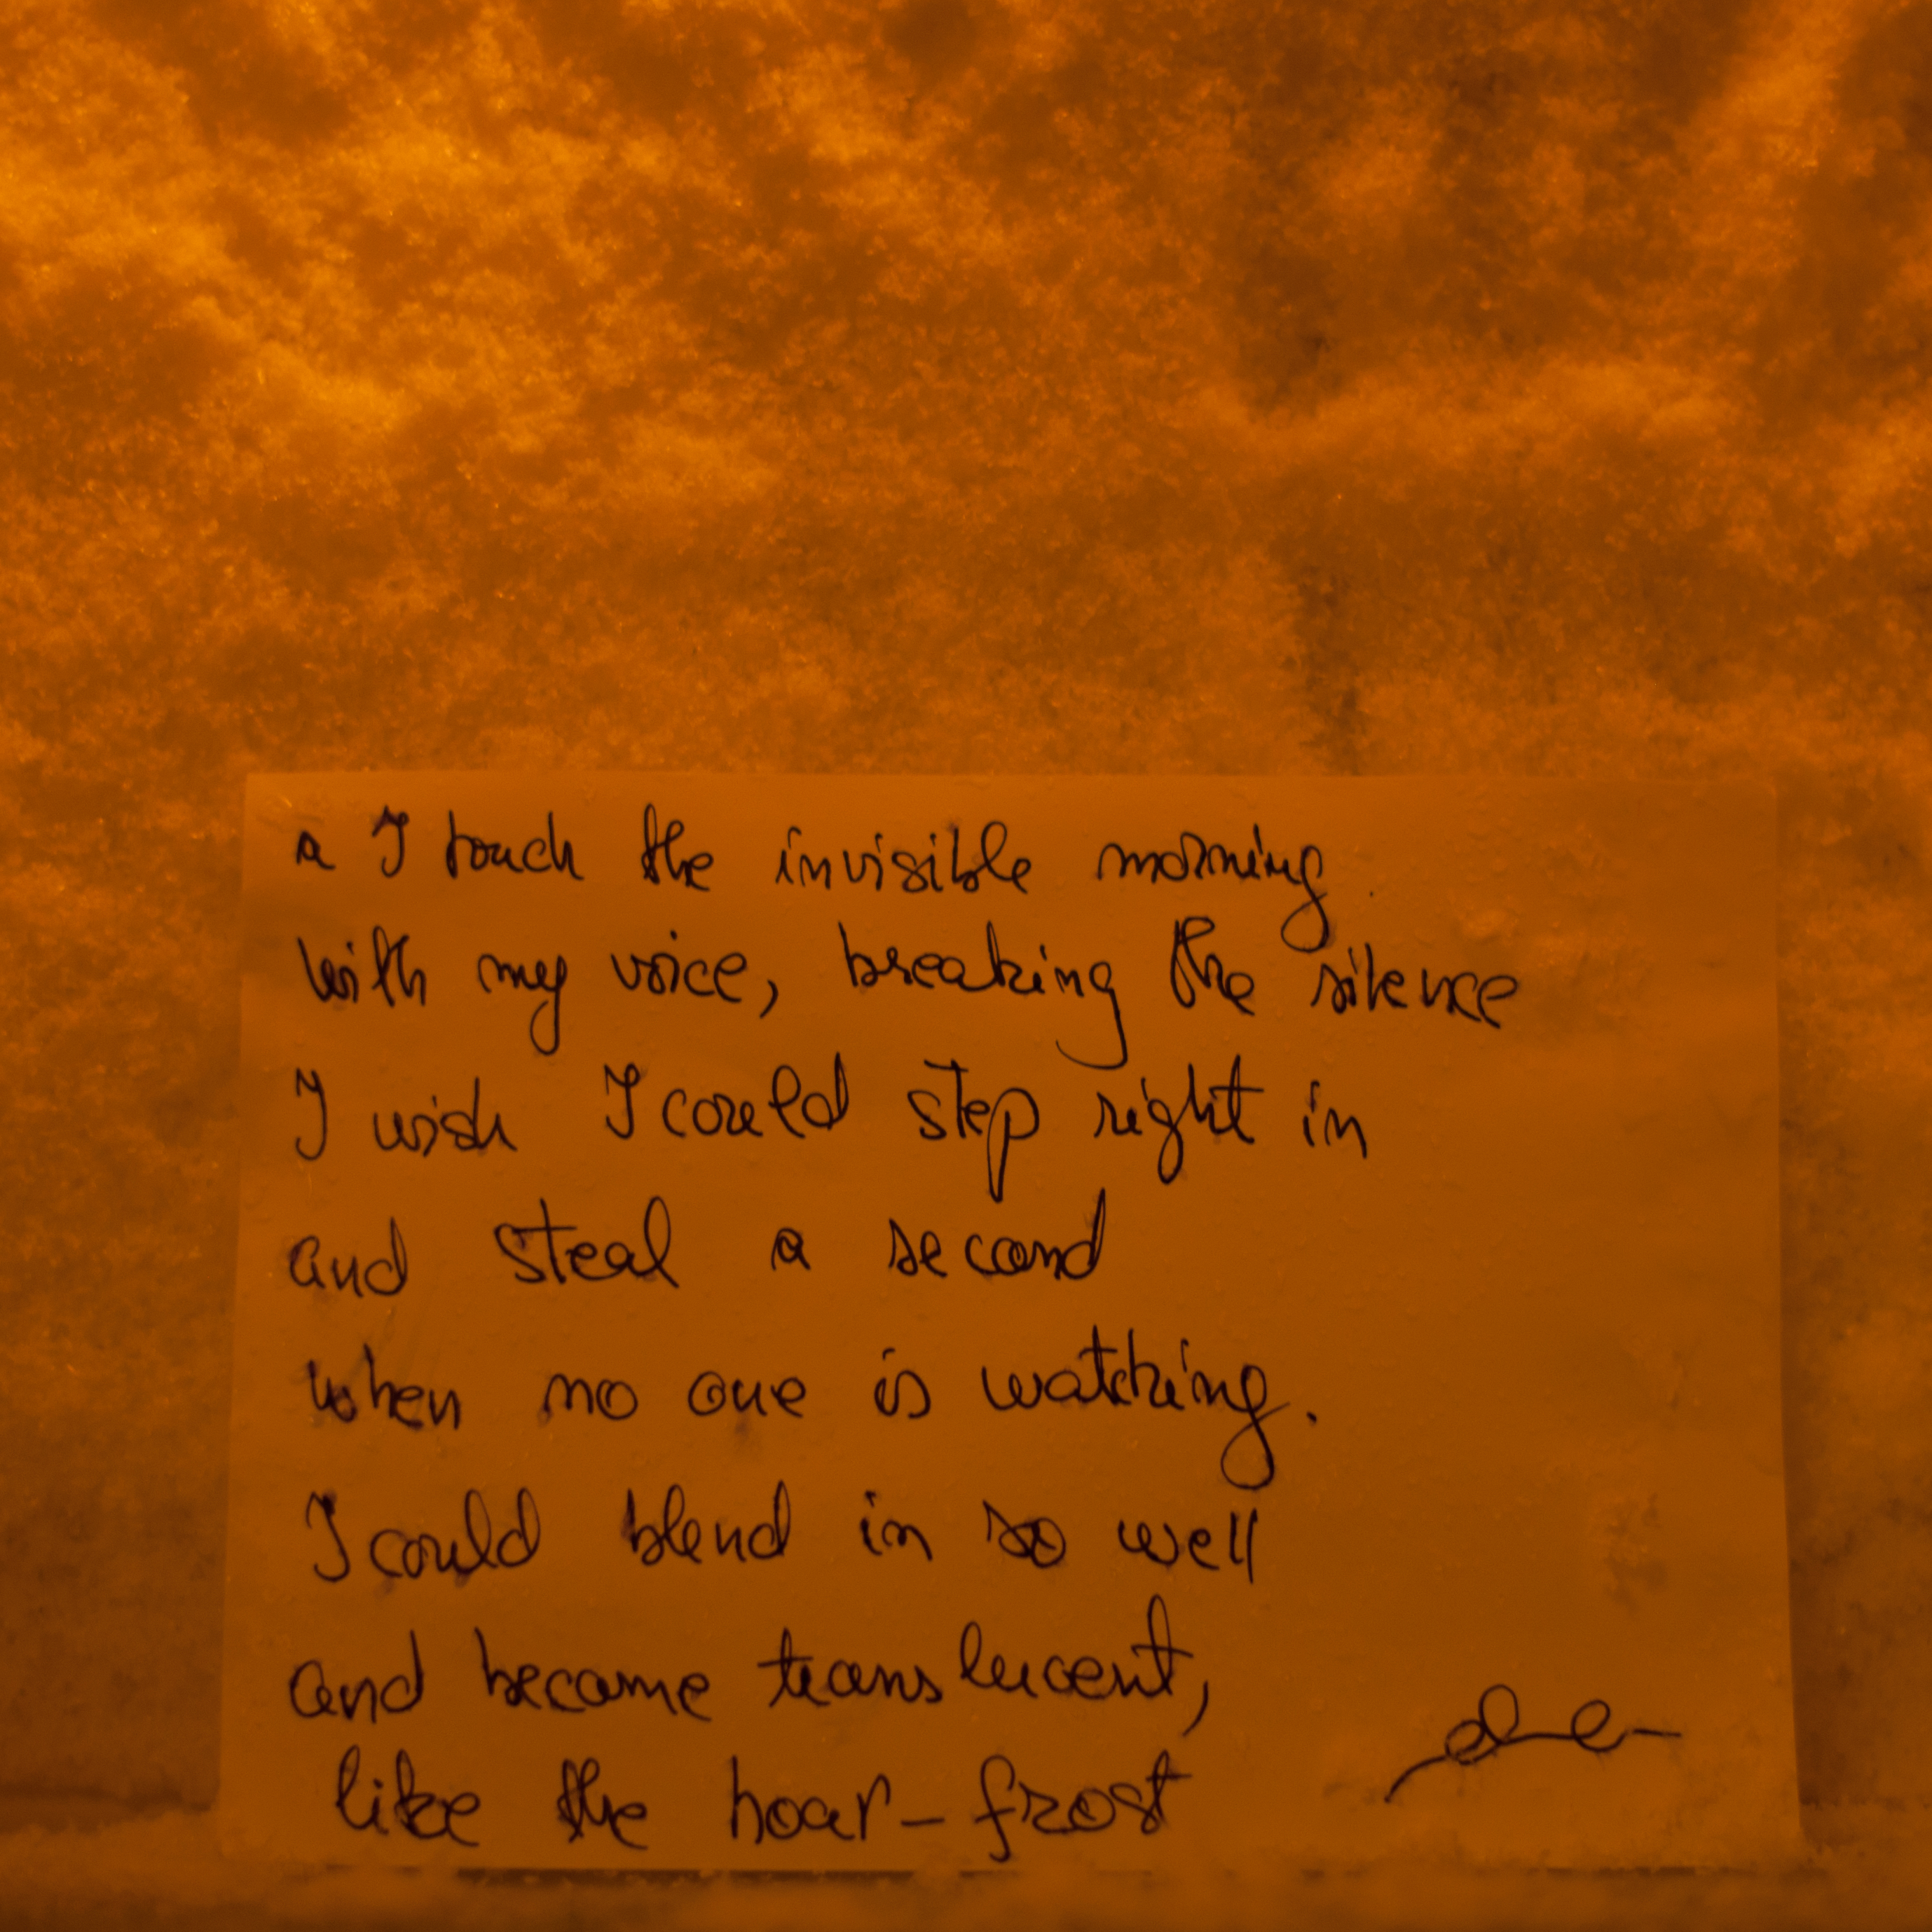 a I touch the invisible morning
with my voice, breaking the silence
I wish I could step right in
and steal a second
when no one is watching.
I could blend in so well
and become translucent,
like the hoar-frost